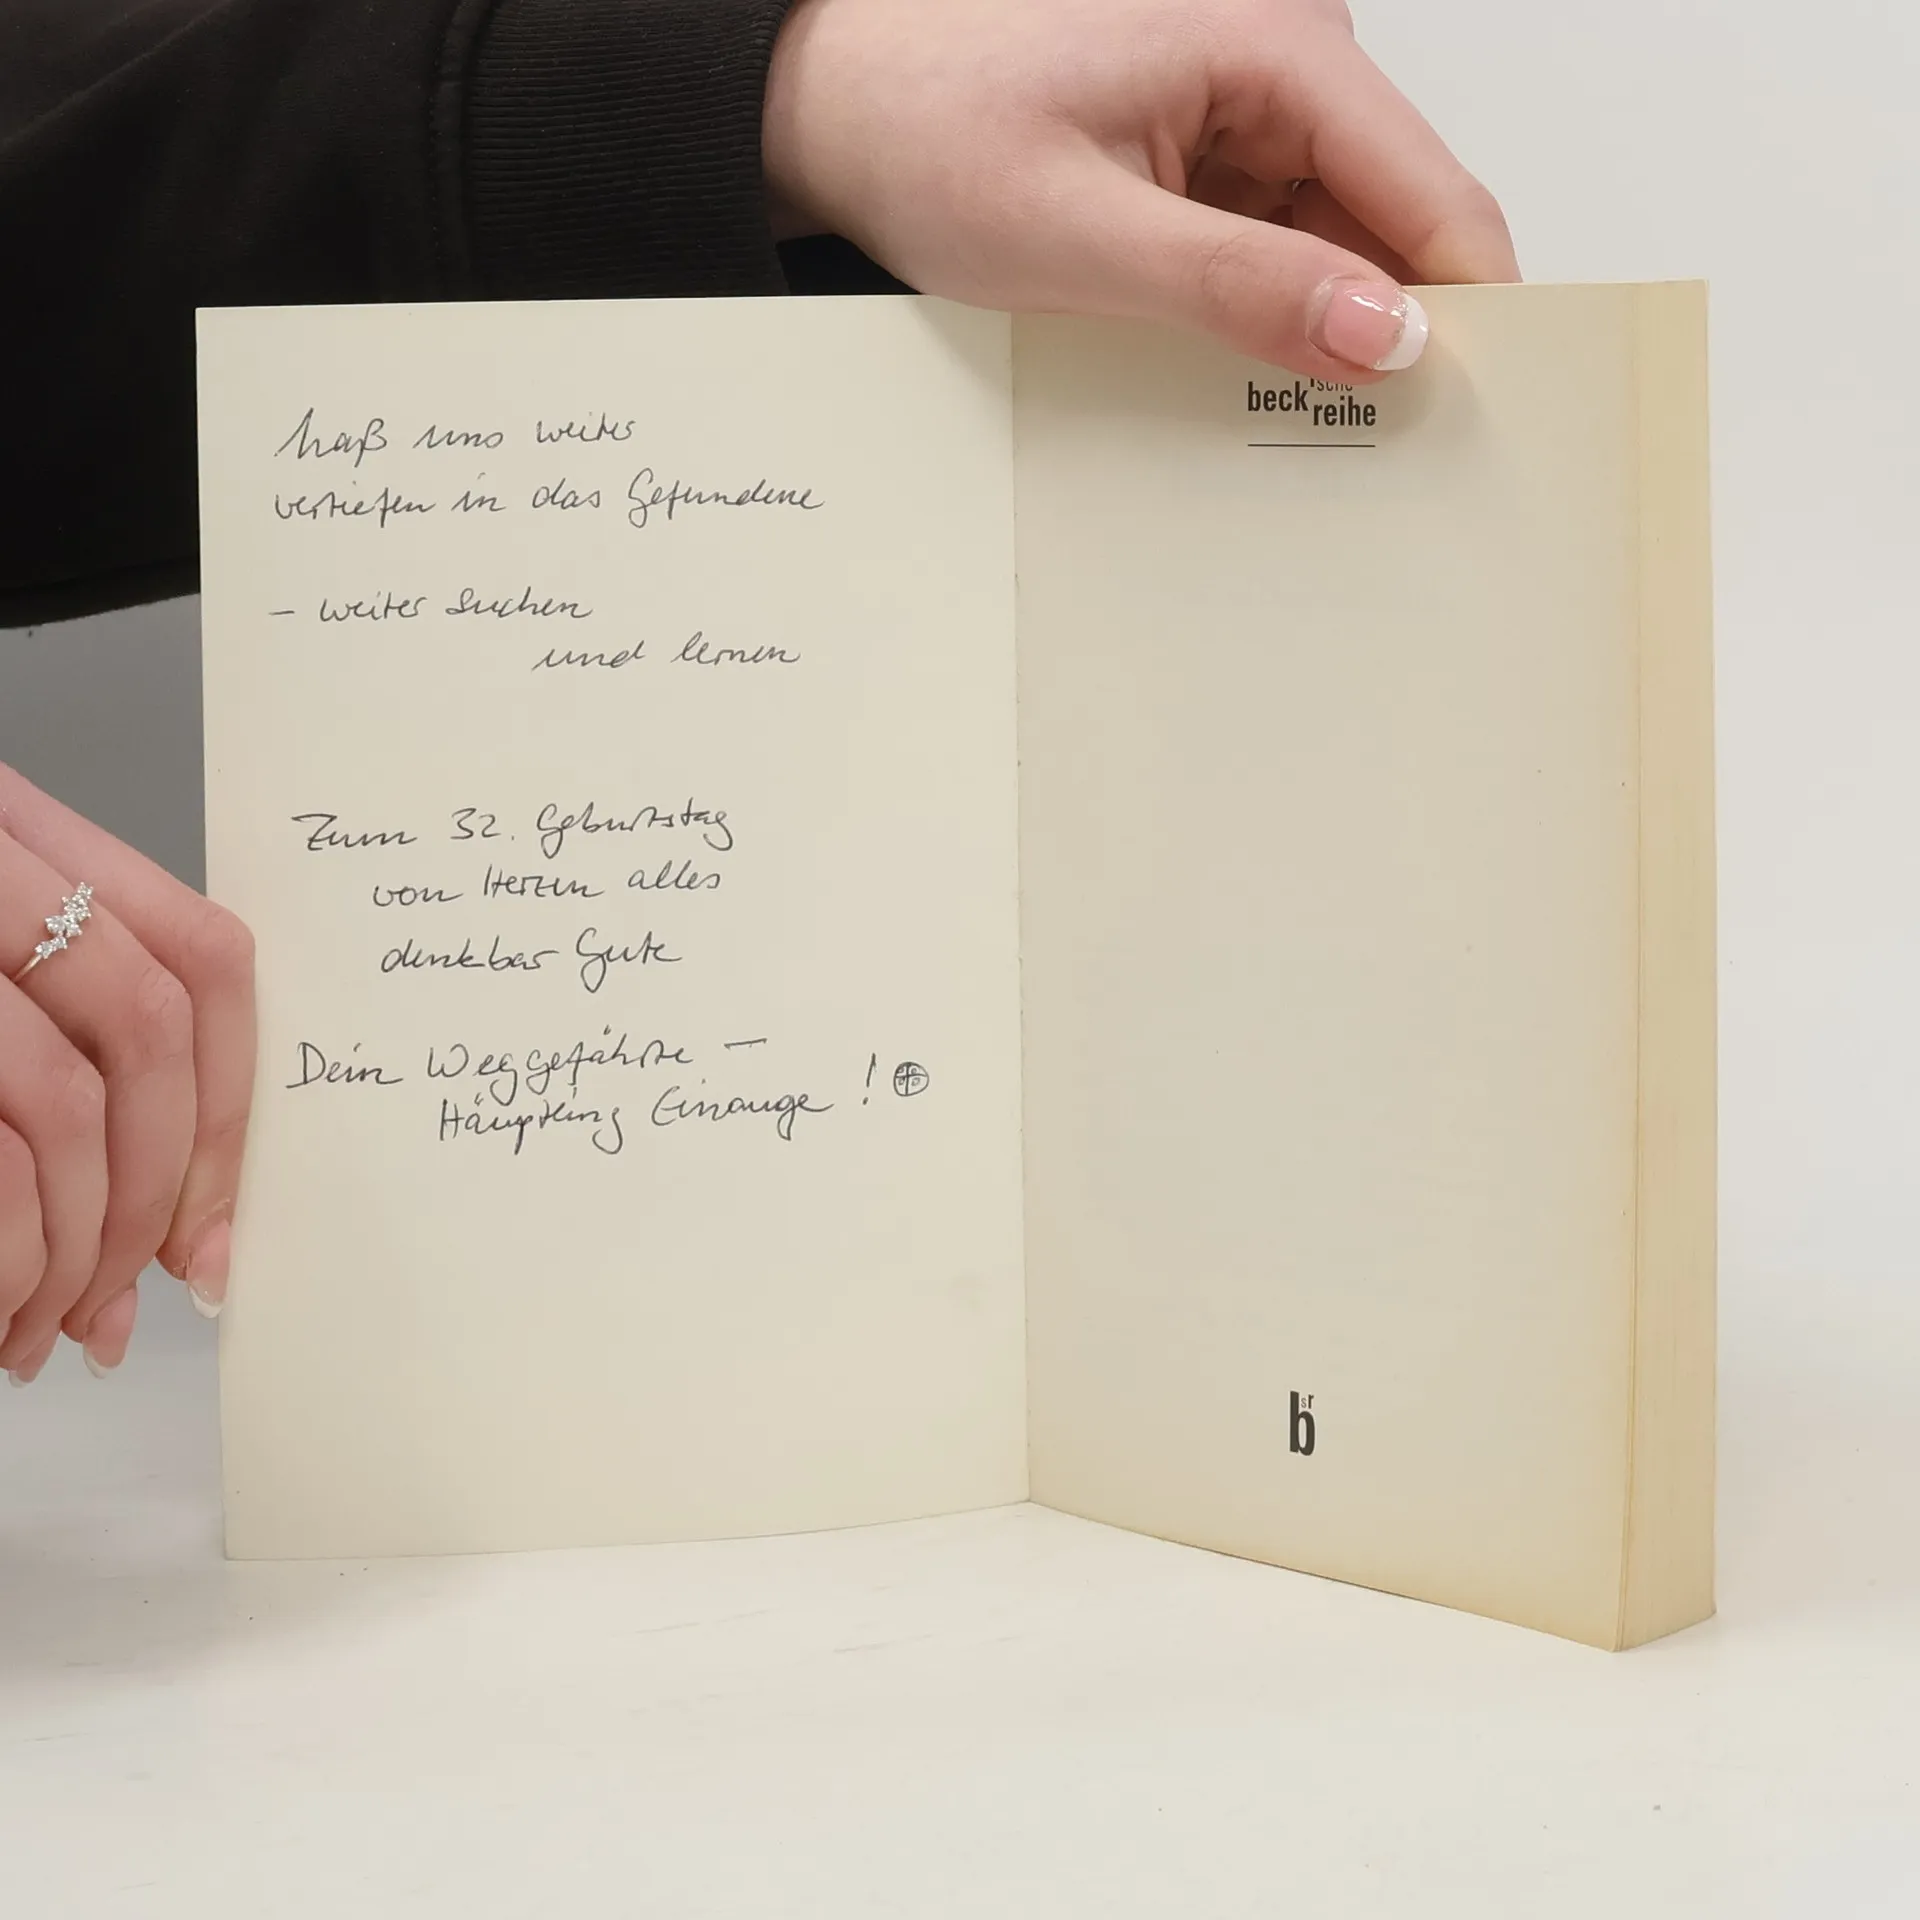 Laß uns weiter
vertiefen in das Gefundene
– weiter suchen
und lernen
Zum 32. Geburtstag
von Herzen alles
denkbar Gute
Dein Weggefährte –
Häuptling Einauge !
beck'sche
reihe
bsr